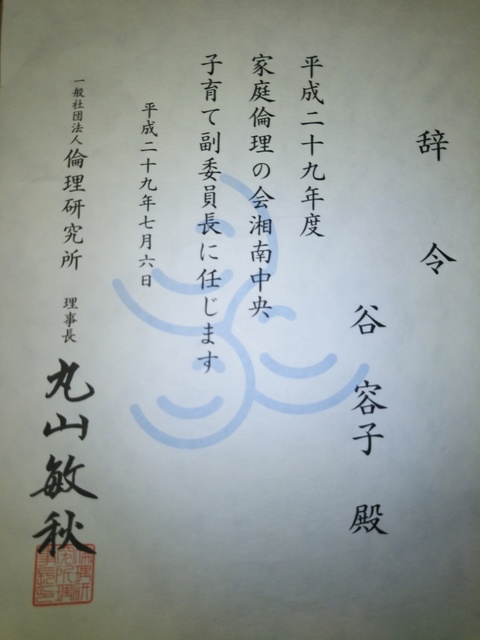 辞令
谷容子殿
平成二十九年度
家庭倫理の会湘南中央
子育て副委員長に任じます
平成二十九年七月六日
一般社団法人倫理研究所 理事長 丸山敏秋